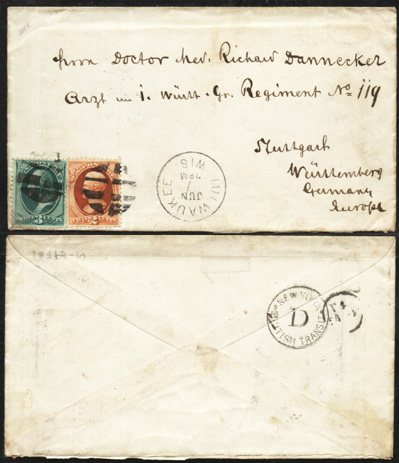 Herrn Doctor Med. Richard Dannecker
Arzt im 1. Württ. Gr. Regiment No. 119
Stuttgart
Württemberg
Germany
Europe
MILWAUKEE
WIS.
JUN
7
2PM
3 CENTS
2 CENTS
NEW YORK
D
BRITISH TRANSIT